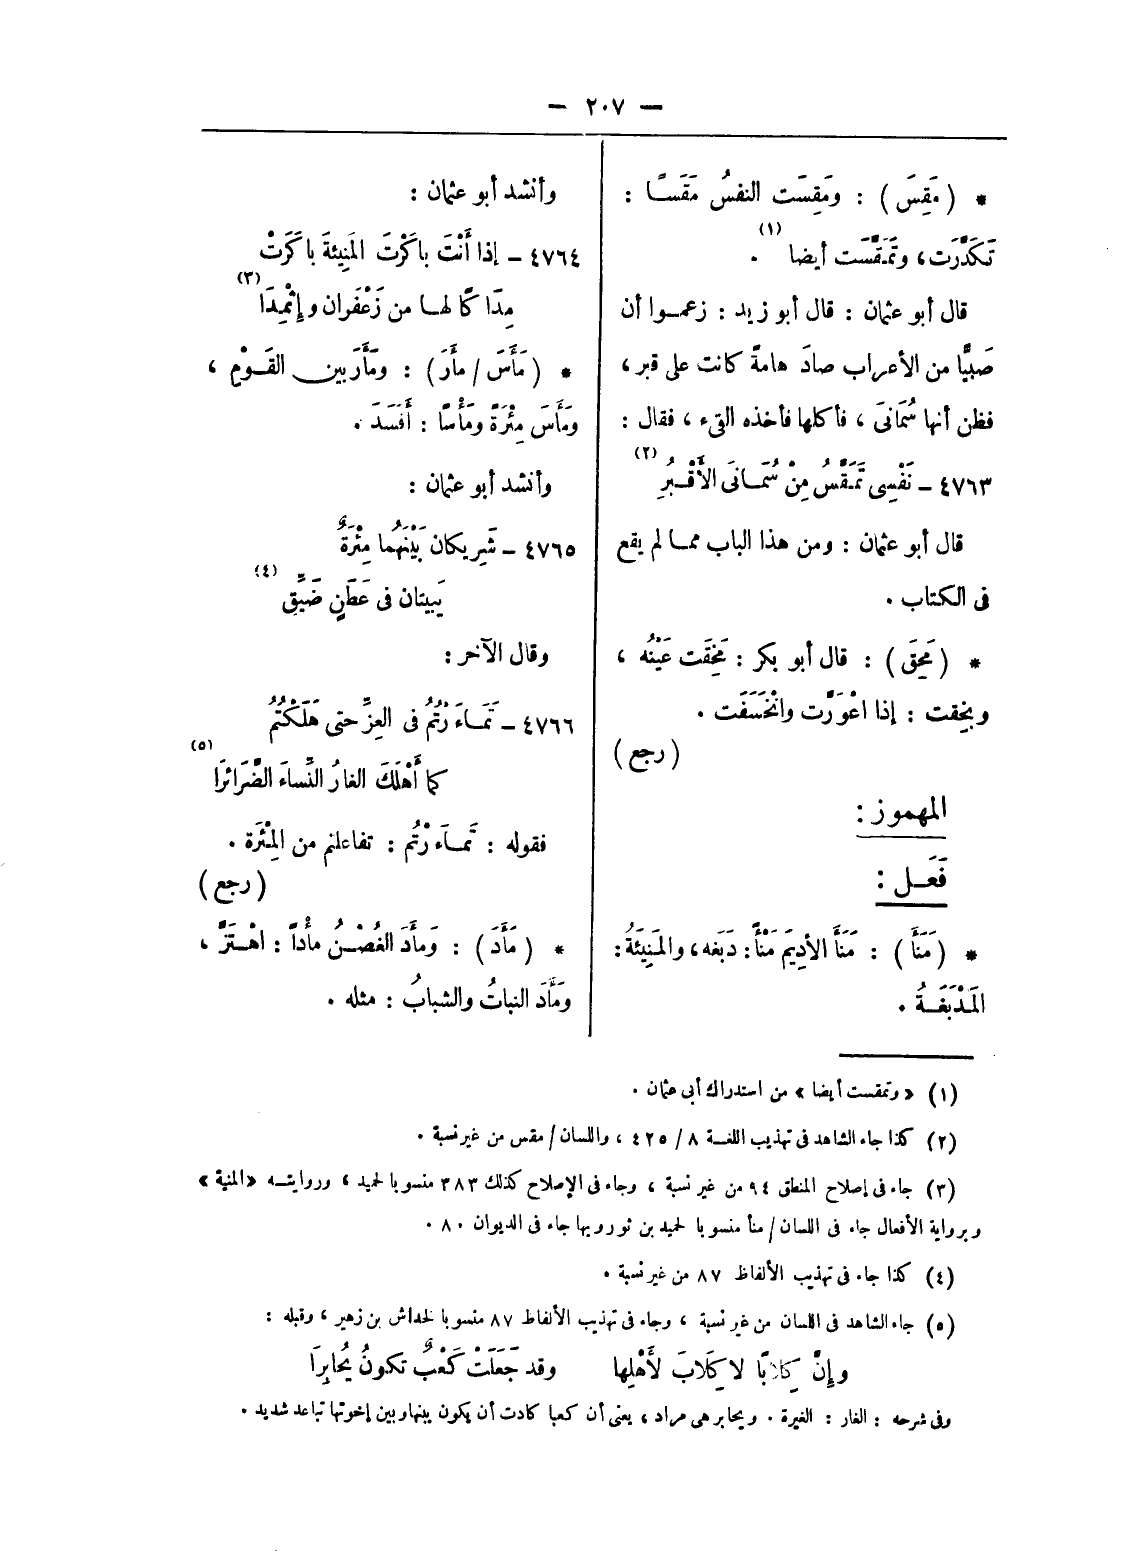 — ٢٠٧ —
* ( مَقِسَ ) : ومَقِسَت النفسُ مَقَسًا :
تَكَدَّرَت ، وتَمَقَّسَت أيضا (١) .
قال أبو عثمان : قال أبو زيد : زعموا أن
صَبِيًّا من الأعراب صادَ هامةً كانت على قبر ،
فظن أنها سُمَانَى ، فأكلها فأخذه القىء ، فقال :
٤٧٦٣ – نَفْسِى تَمَقَّسُ مِنْ سُمَانَى الأَقْبُرِ (٢)
قال أبو عثمان : ومن هذا الباب مما لم يقع
فى الكتاب .
* ( مَخِقَ ) : قال أبو بكر : مَخِقَت عَيْنُه ،
وبخِقت : إذا اعْوَرَّت وانْخَسَفَت .
( رجع )
المهموز :
فَعَل :
* ( مَنَأَ ) : مَنَأَ الأديمَ مَنْأً : دَبَغه ، والمَنِيئَةُ :
المَدْبَغَةُ .
وأنشد أبو عثمان :
٤٧٦٤ – إذا أَنْتَ باكَرْتَ المَنِيئةَ باكَرَتْ
مِدَاكًا لها من زَعْفَران وإثْمِدَا (٣)
* ( مَأَسَ / مأَرَ ) : ومَأَرَ بين القَوْمِ ،
ومَأَسَ مِئْرَةً ومَأْسًا : أَفْسَدَ .
وأنشد أبو عثمان :
٤٧٦٥ – شَرِيكان بَيْنَهُما مِئْرَةٌ
يَبِيتان فى عَطَنٍ ضَيِّقِ (٤)
وقال الآخر :
٤٧٦٦ – تَمَاءَرْتُمُ فى العِزِّ حتى هَلَكْتُمُ
كما أَهْلَكَ الغارُ النِّساءَ الضَّرَائرَا (٥)
فقوله : تَمَاءَرْتُم : تفاعلتم من المِئْرَة .
( رجع )
* ( مَأَدَ ) : وَمأَدَ الغُصْنُ مأْداً : اهْتَزَّ ،
ومَأَدَ النباتُ والشبابُ : مثله .
(١) « وتمقست أيضا » من استدراك أبى عثمان .
(٢) كذا جاء الشاهد فى تهذيب اللغة ٨ / ٤٢٥ ، واللسان / مقس من غير نسبة .
(٣) جاء فى إصلاح المنطق ٩٤ من غير نسبة ، وجاء فى الإصلاح كذلك ٣٨٣ منسوبا لحميد ، وروايته « المنية »
وبرواية الأفعال جاء فى اللسان / منأ منسوبا لحميد بن ثور وبها جاء فى الديوان ٨٠ .
(٤) كذا جاء فى تهذيب الألفاظ ٨٧ من غير نسبة .
(٥) جاء الشاهد فى اللسان من غير نسبة ، وجاء فى تهذيب الألفاظ ٨٧ منسوبا لخداش بن زهير ، وقبله :
وإنَّ كِلابًا لا كِلابَ لأَهْلِها وقد جَعَلَتْ كَعْبٌ تكونُ يُحابِرَا
وفى شرحه : الغار : الغيرة . ويحابر هى مراد ، يعنى أن كعبا كادت أن يكون بينها وبين إخوتها تباعد شديد .